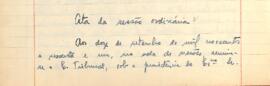 Ata da sessão ordinária
Aos doze de setembro de mil novecentos
e sessenta e um, na sala de sessões, reuniu-
se o E. Tribunal, sob a presidência do Exmo. Sr.